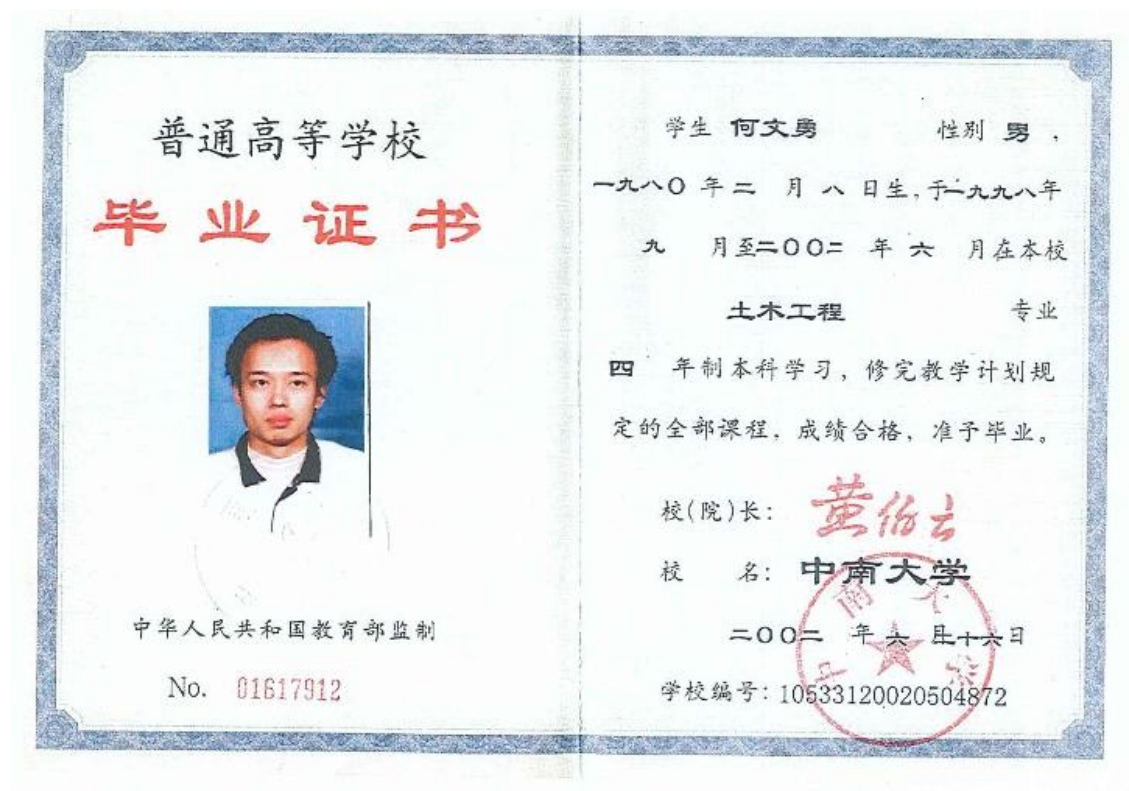 普通高等学校
毕业证书
中华人民共和国教育部监制
No. 01617912
学生 何文勇 性别 男，
一九八〇 年 二 月 八 日生，于一九九八年
九 月至二〇〇二 年 六 月在本校
土木工程 专业
四 年制本科学习，修完教学计划规
定的全部课程，成绩合格，准予毕业。
校(院)长： 黄伯云
校 名： 中南大学
二〇〇二 年 六 月十六日
学校编号：10533120020504872
中南大学